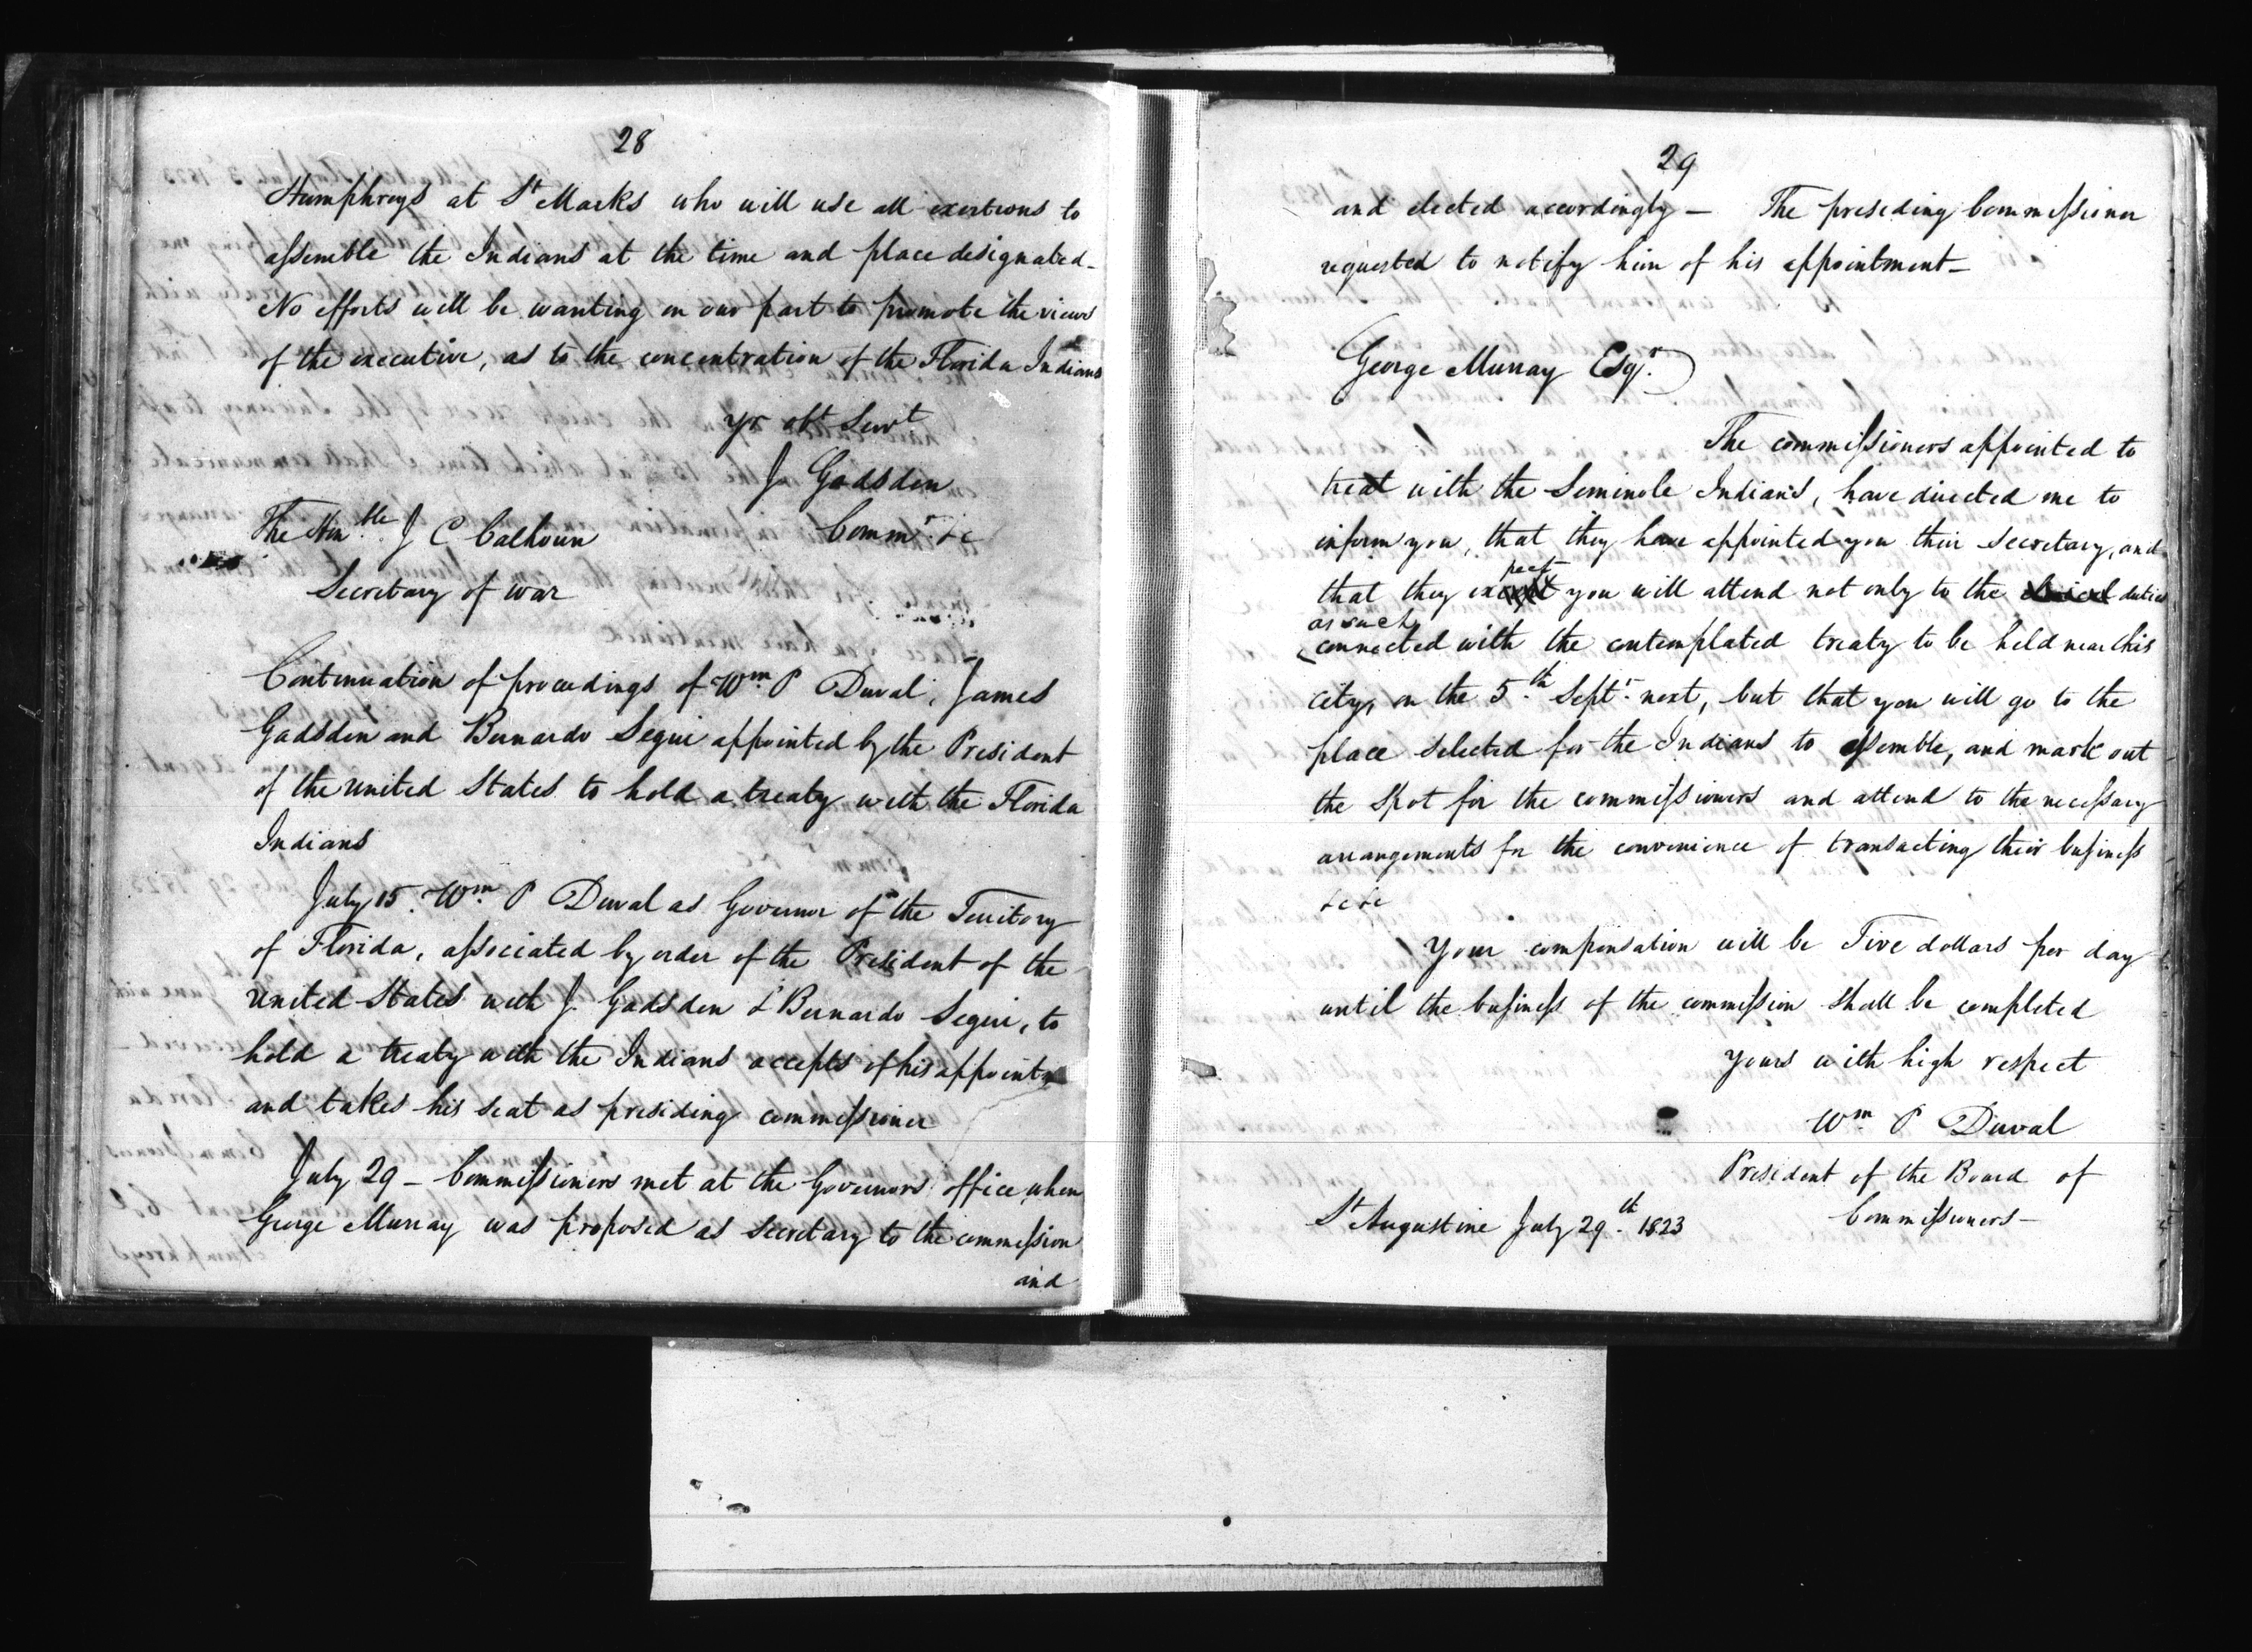 28
Humphreys at St Marks who will use all exertions to
assemble the Indians at the time and place designated-
No efforts will be wanting on our part to promote the views
of the executive, as to the concentration of the Florida Indians
yr obt Servt
J Gadsden
Commr. &c
The Honble. J C Calhoun
Secretary of War
Continuation of proceedings of Wm. P Duval, James
Gadsden and Bernardo Segui appointed by the President
of the United States to hold a treaty with the Florida
Indians
July 15. Wm. P Duval as Governor of the Territory
of Florida, associated by order of the President of the
United States with J. Gadsden & Bernardo Segui, to
hold a treaty with the Indians accepts of his appointm
and takes his seat as presiding commissioner
July 29 - Commissioners met at the Governors office when
George Murray was proposed as Secretary to the commission
and
29
and elected accordingly — The presiding Commissioner
requested to notify him of his appointment—
George Murray Esqr.
The commissioners appointed to
treat with the Seminole Indians, have directed me to
inform you, that they have appointed you their Secretary, and
pect
that they except you will attend not only to the duties
as such
connected with the contemplated treaty to be held near this
city, on the 5th. Septr. next, but that you will go to the
place selected for the Indians to assemble, and mark out
the spot for the commissioners and attend to the necessary
arrangements for the convenience of transacting their business
&c &c
Your compensation will be Five dollars per day
until the business of the commission shall be completed
Yours with high respect
Wm. P Duval
President of the Board of
Commissioners—
St Augustine July 29th. 1823